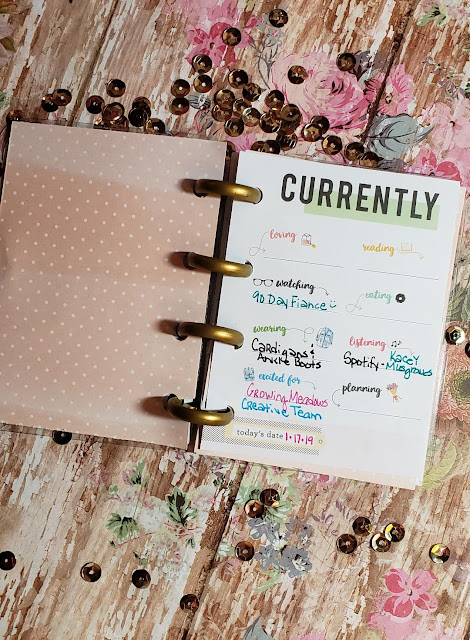 CURRENTLY
loving
reading
watching
90 Day Fiance
eating
wearing
Cardigans &
Ankle Boots
listening
Spotify - Kacey
Musgraves
excited for
Growing Meadows
Creative Team
planning
today's date 1•17•19